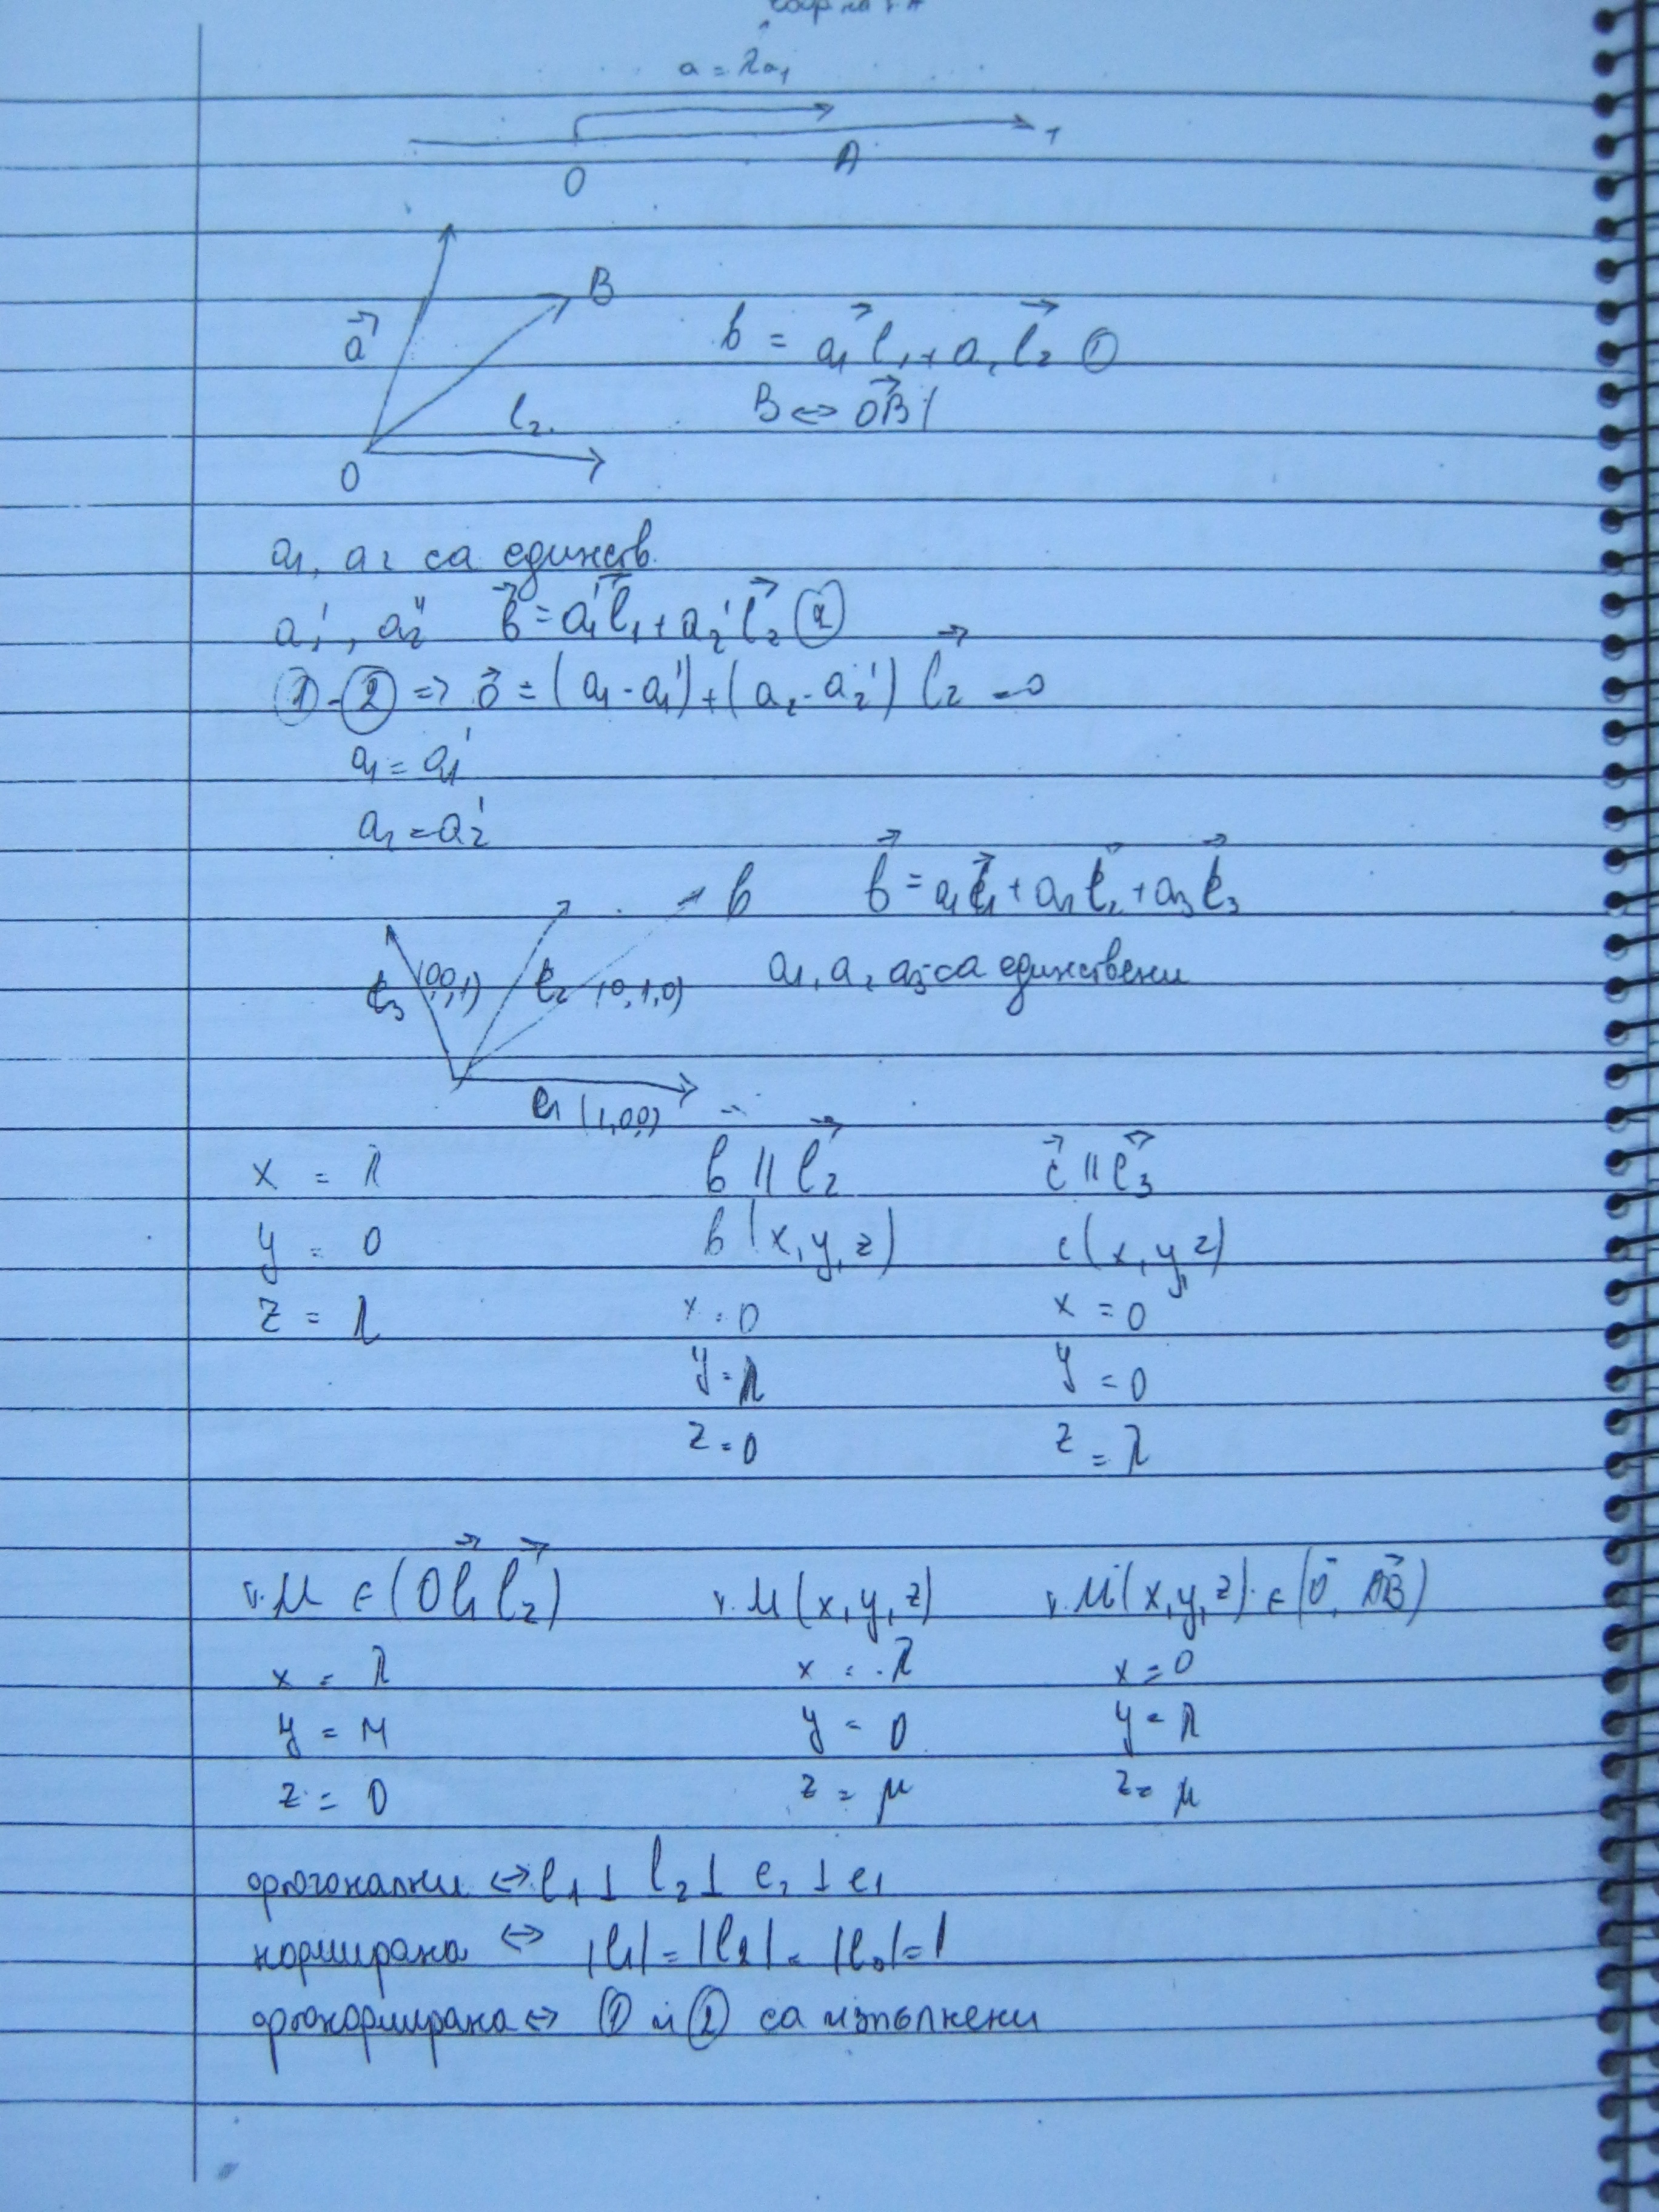 a = λa₁
O A
B
a⃗
b = a₁l⃗₁ + a₂l⃗₂ ①
B ⇔ OB⃗
l₂
O
a₁, a₂ са единств.
a₁', a₂'' b⃗ = a₁'l⃗₁ + a₂'l⃗₂ ②
① - ② => 0⃗ = (a₁ - a₁') + (a₂ - a₂') l⃗₂ = 0
a₁ = a₁'
a₂ = a₂'
b b⃗ = a₁e⃗₁ + a₂e⃗₂ + a₃e⃗₃
e₃ (0,0,1) e₂ (0,1,0) a₁, a₂ a₃ са единствени
e₁ (1,0,0)
x = λ b ∥ l⃗₂ c⃗ ∥ e⃗₃
y = 0 b(x, y, z) c(x, y, z)
z = λ x = 0 x = 0
y = λ y = 0
z = 0 z = λ
т. M ∈ (O l⃗₁ l⃗₂) т. M (x, y, z) т. M (x, y, z) ∈
x = λ x = λ x = 0
y = M y = 0 y = λ
z = 0 z = μ z = μ
ортогонални ⇔ l₁ ⊥ l₂ ⊥ e₂ ⊥ e₁
нормирана ⇔ |l₁| = |l₂| = |l₃| = 1
ортонормирана ⇔ ① и ② са изпълнени